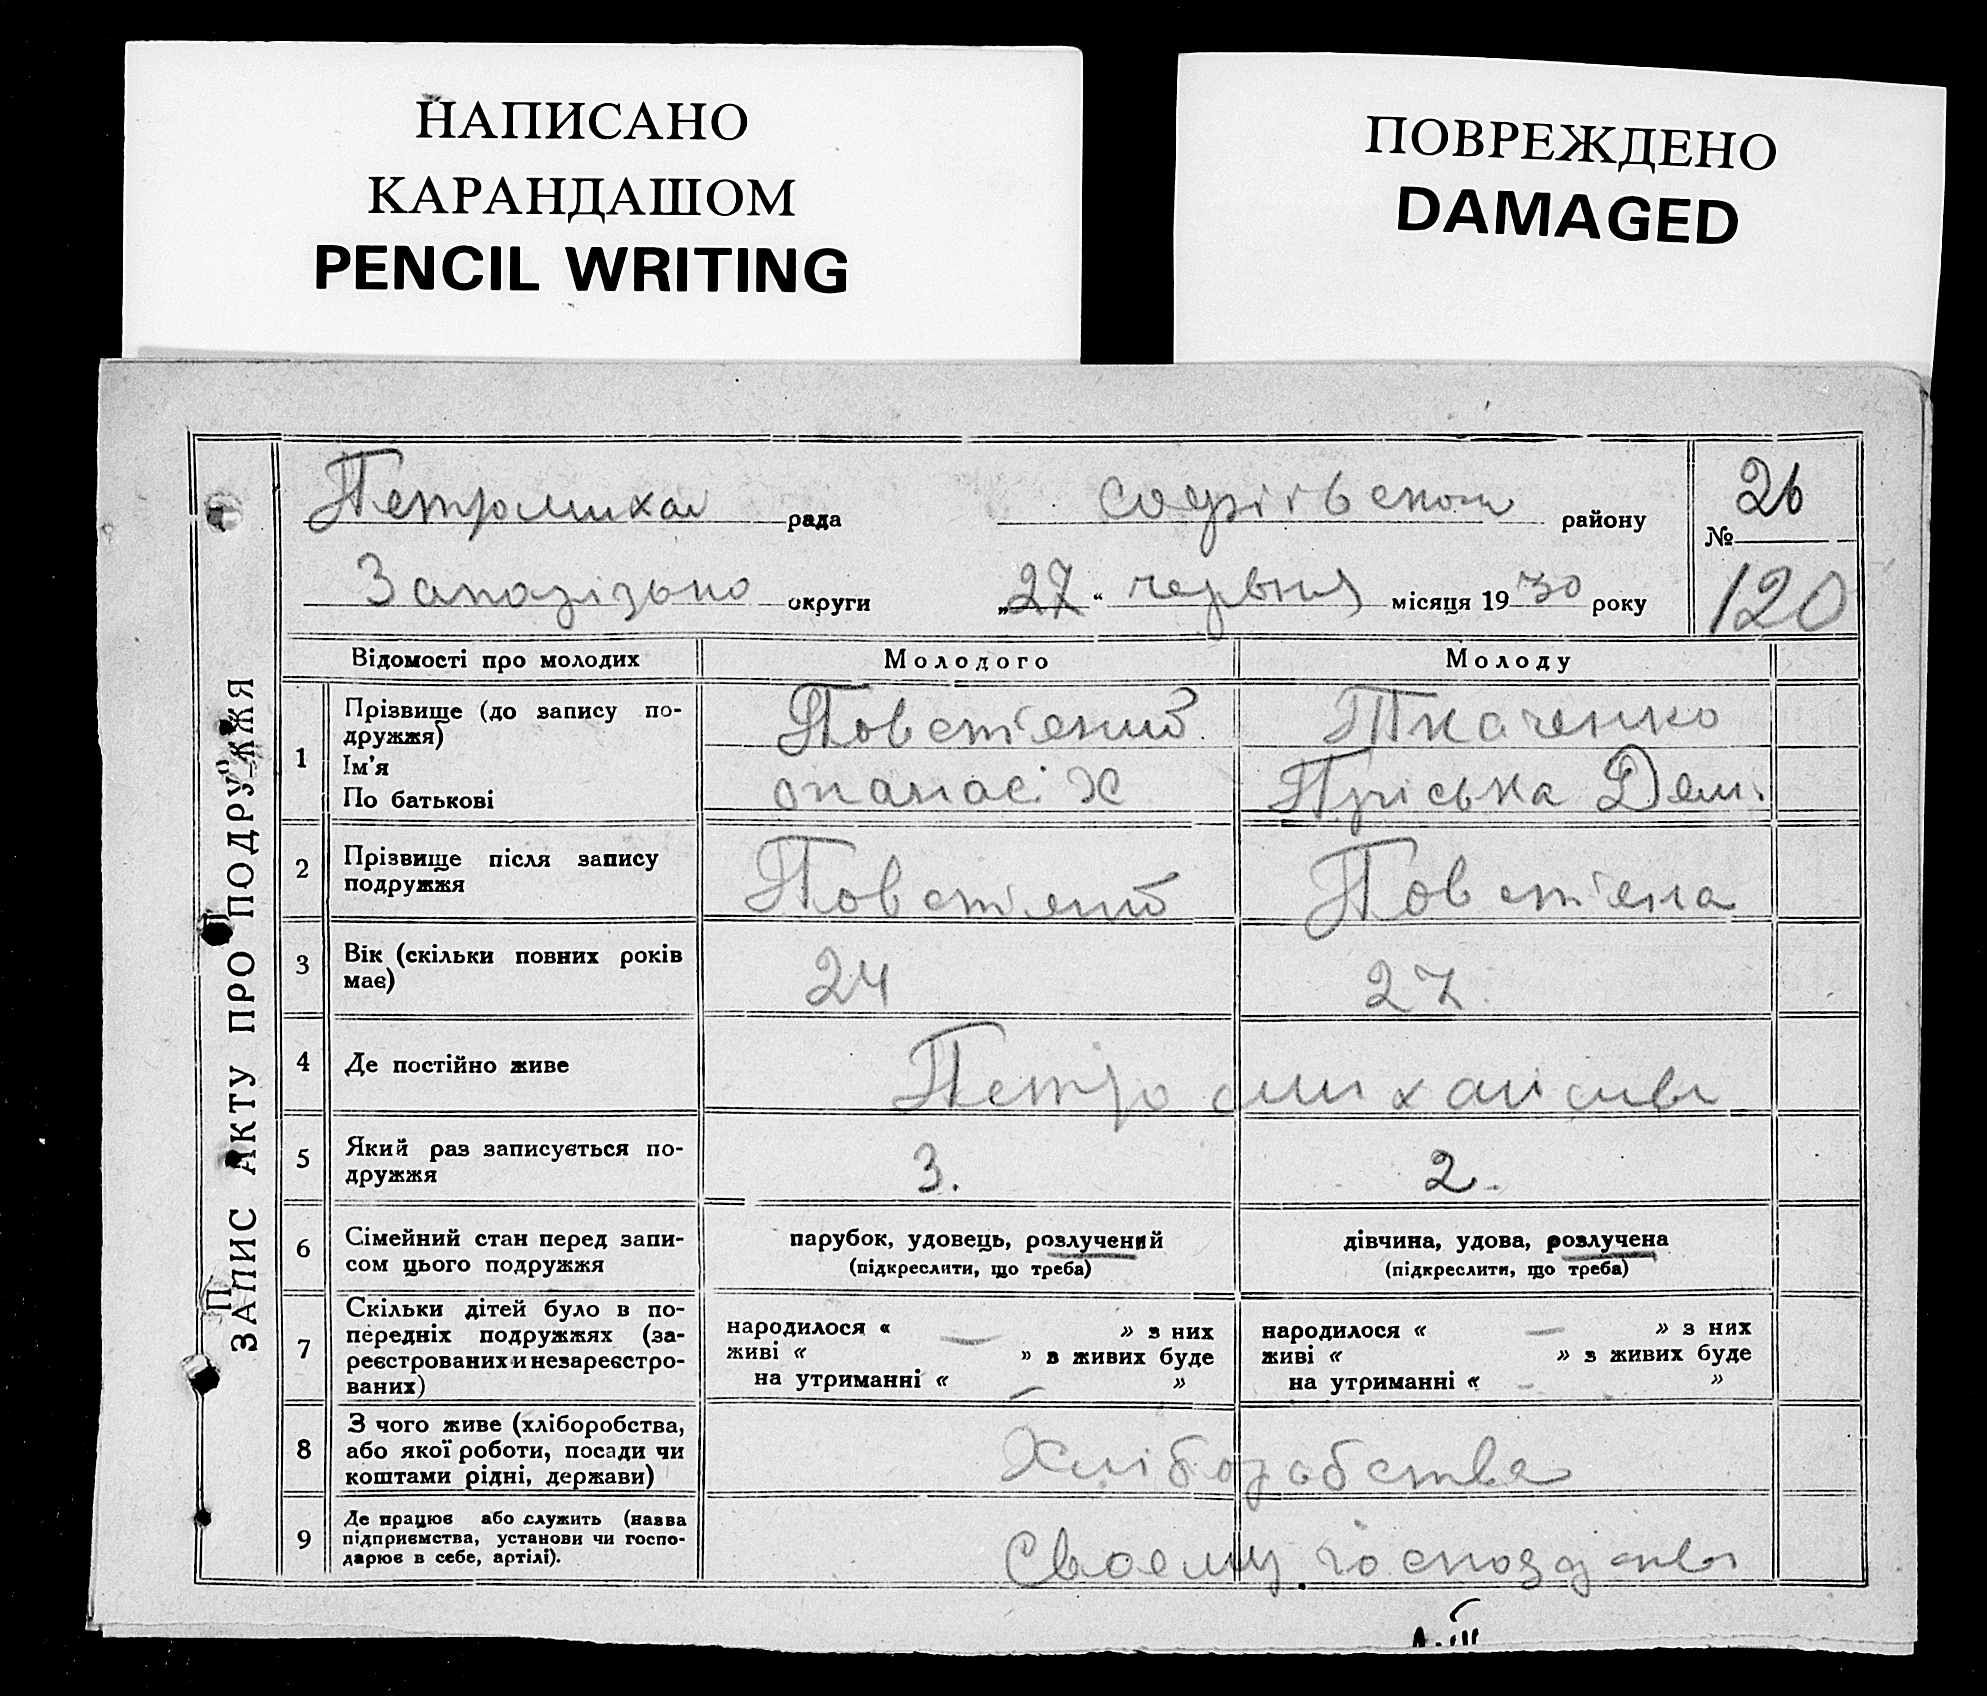 НАПИСАНО
КАРАНДАШОМ
PENCIL WRITING
ПОВРЕЖДЕНО
DAMAGED
ЗАПИС АКТУ ПРО ПОДРУЖЖЯ
Петромихал рада Софіївського району
№ 26
Запорізько округи „27“ червня місяця 1930 року
120
Відомості про молодих Молодого Молоду
1 Прізвище (до запису по-
дружжя)
Ім'я
По батькові
Повст'яний Ткаченко
опанас Х Пріська Дем.
2 Прізвище після запису
подружжя
Повст'яний Повст'яна
3 Вік (скільки повних років
має)
24 27
4 Де постійно живе
5 Який раз записується по-
дружжя
3. 2.
6 Сімейний стан перед запи-
сом цього подружжя
парубок, удовець, розлучений
(підкреслити, що треба)
дівчина, удова, розлучена
(підкреслити, що треба)
7 Скільки дітей було в по-
передніх подружжях (за-
реєстрованих и незареєстро-
ваних)
народилося « — » з них
живі « » в живих буде
на утриманні « — »
народилося « — » з них
живі « » з живих буде
на утриманні « — »
8 З чого живе (хліборобства,
або якої роботи, посади чи
коштами рідні, держави)
Хліборобства
9 Де працює або служить (назва
підприємства, установи чи госпо-
дарює в себе, артілі).
Своему